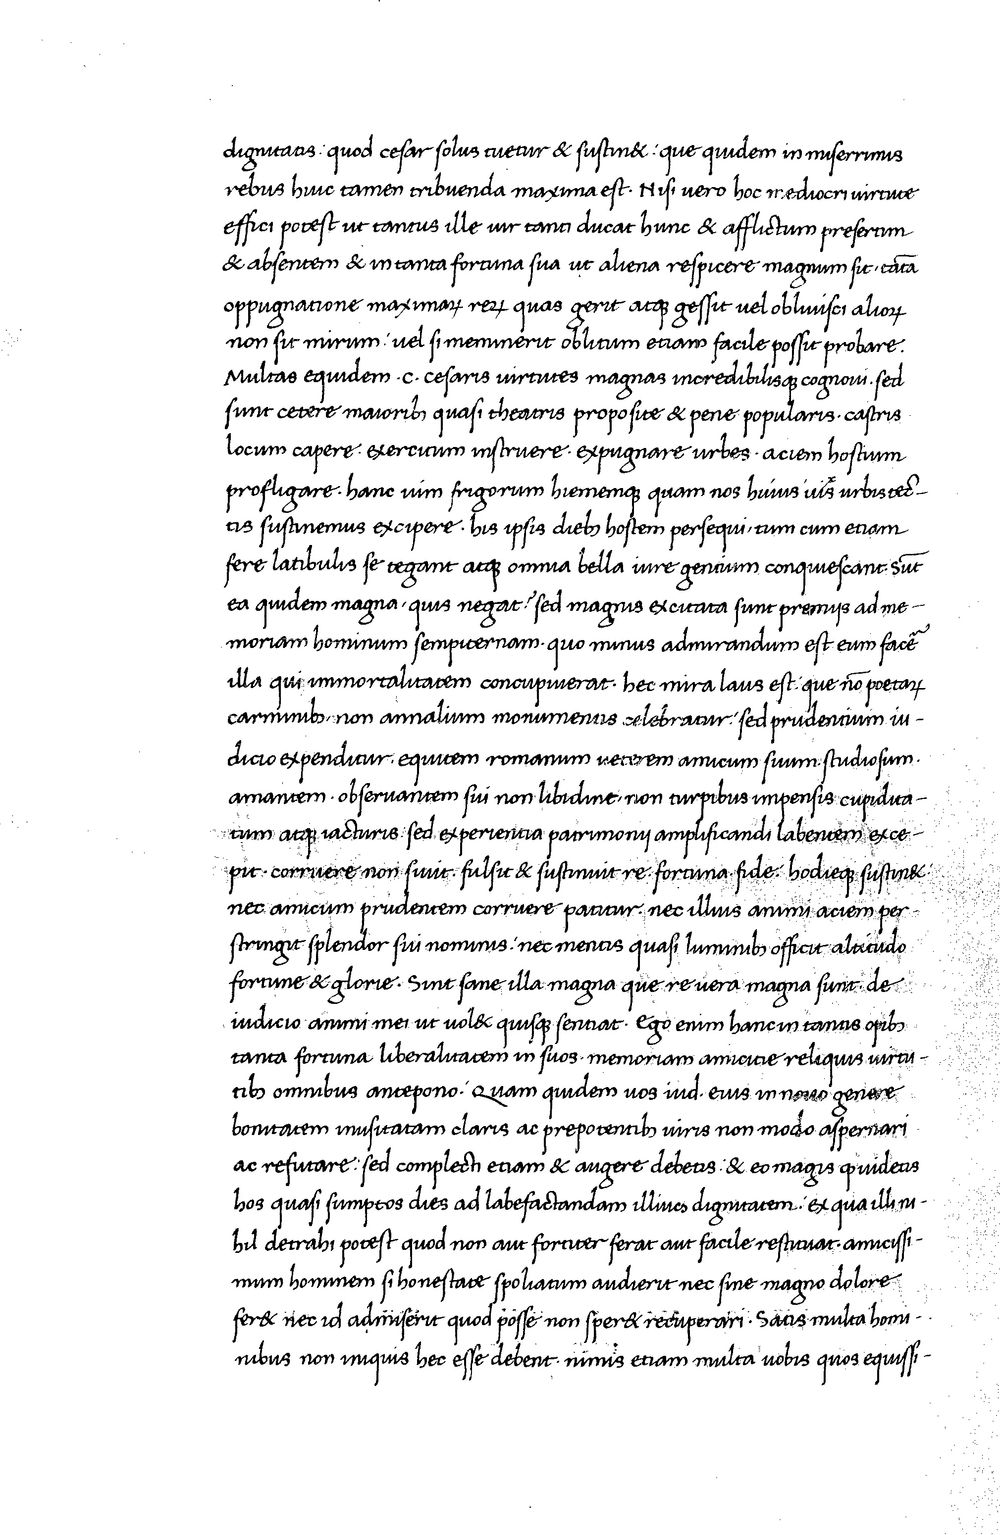 dignitatis: quod cesar solus tuetur & sustin&: que quidem in miserrimis
rebus huic tamen tribuenda maxima est. Nisi uero hoc mediocri uirtute
effici potest ut tantus ille uir tanti ducat hunc & afflictum presertim
& absentem & in tanta fortuna sua ut aliena respicere magnum sit, tāta
oppugnatione maximaꝝ reꝝ quas gerit atqꝫ gessit uel obliuisci alioꝝ
non sit mirum: uel si meminerit oblitum etiam facile possit probare.
Multas equidem .C. cesaris uirtutes magnas incredibilisqꝫ cognoui. sed
sunt cetere maioribꝫ quasi theatris proposite & pene popularis. castris
locum capere. exercitum instruere. expugnare urbes. aciem hostium
profligare. hanc uim frigorum hiememqꝫ quam nos huius uix̄ urbis tec-
tis sustinemus excipere. his ipsis diebꝫ hostem persequi, tum cum etiam
fere latibulis se tegant atqꝫ omnia bella iure gentium conquiescant. Sūt
ea quidem magna, quis negat? sed magnis excitata sunt premijs ad me-
moriam hominum sempiternam. quo minus admirandum est eum facē
illa qui immortalitatem concupiuerat. hec mira laus est: que nō poetaꝝ
carminibꝫ, non annalium monumentis celebratur: sed prudentium iu-
dicio expenditur. equitem romanum ueterem amicum suum. studiosum.
amantem. obseruantem sui non libidine, non turpibus impensis cupidita-
tum atqꝫ iacturis: sed experientia patrimonij amplificandi labentem exce-
pit. corruere non siuit. fulsit & sustinuit re. fortuna. fide. hodieqꝫ sustin&.
nec amicum prudentem corruere patitur. nec illius animi aciem per-
stringit splendor sui nominis: nec mentis quasi luminibꝫ officit altitudo
fortune & glorie. Sint sane illa magna que re uera magna sunt. de
iudicio animi mei ut uol& quisqꝫ sentiat. Ego enim hanc in tantis opibꝫ
tanta fortuna liberalitatem in suos. memoriam amicitie reliquis uirtu-
tibꝫ omnibus antepono: Quam quidem uos iud. eius in nouo genere
bonitatem inusitatam claris ac prepotentibꝫ uiris non modo aspernari
ac refutare: sed complecti etiam & augere debetis: & eo magis ꝙ uidetis
hos quasi sumptos dies ad labefactandam illius dignitatem: ex qua illi ni-
hil detrahi potest quod non aut fortiter ferat aut facile restituat. amicissi-
mum hominem si honestate spoliatum audierit nec sine magno dolore
fer& nec id admiserit quod posse non sper& recuperari. Satis multa homi-
nibus non iniquis hec esse debent. nimis etiam multa uobis quos equissi-